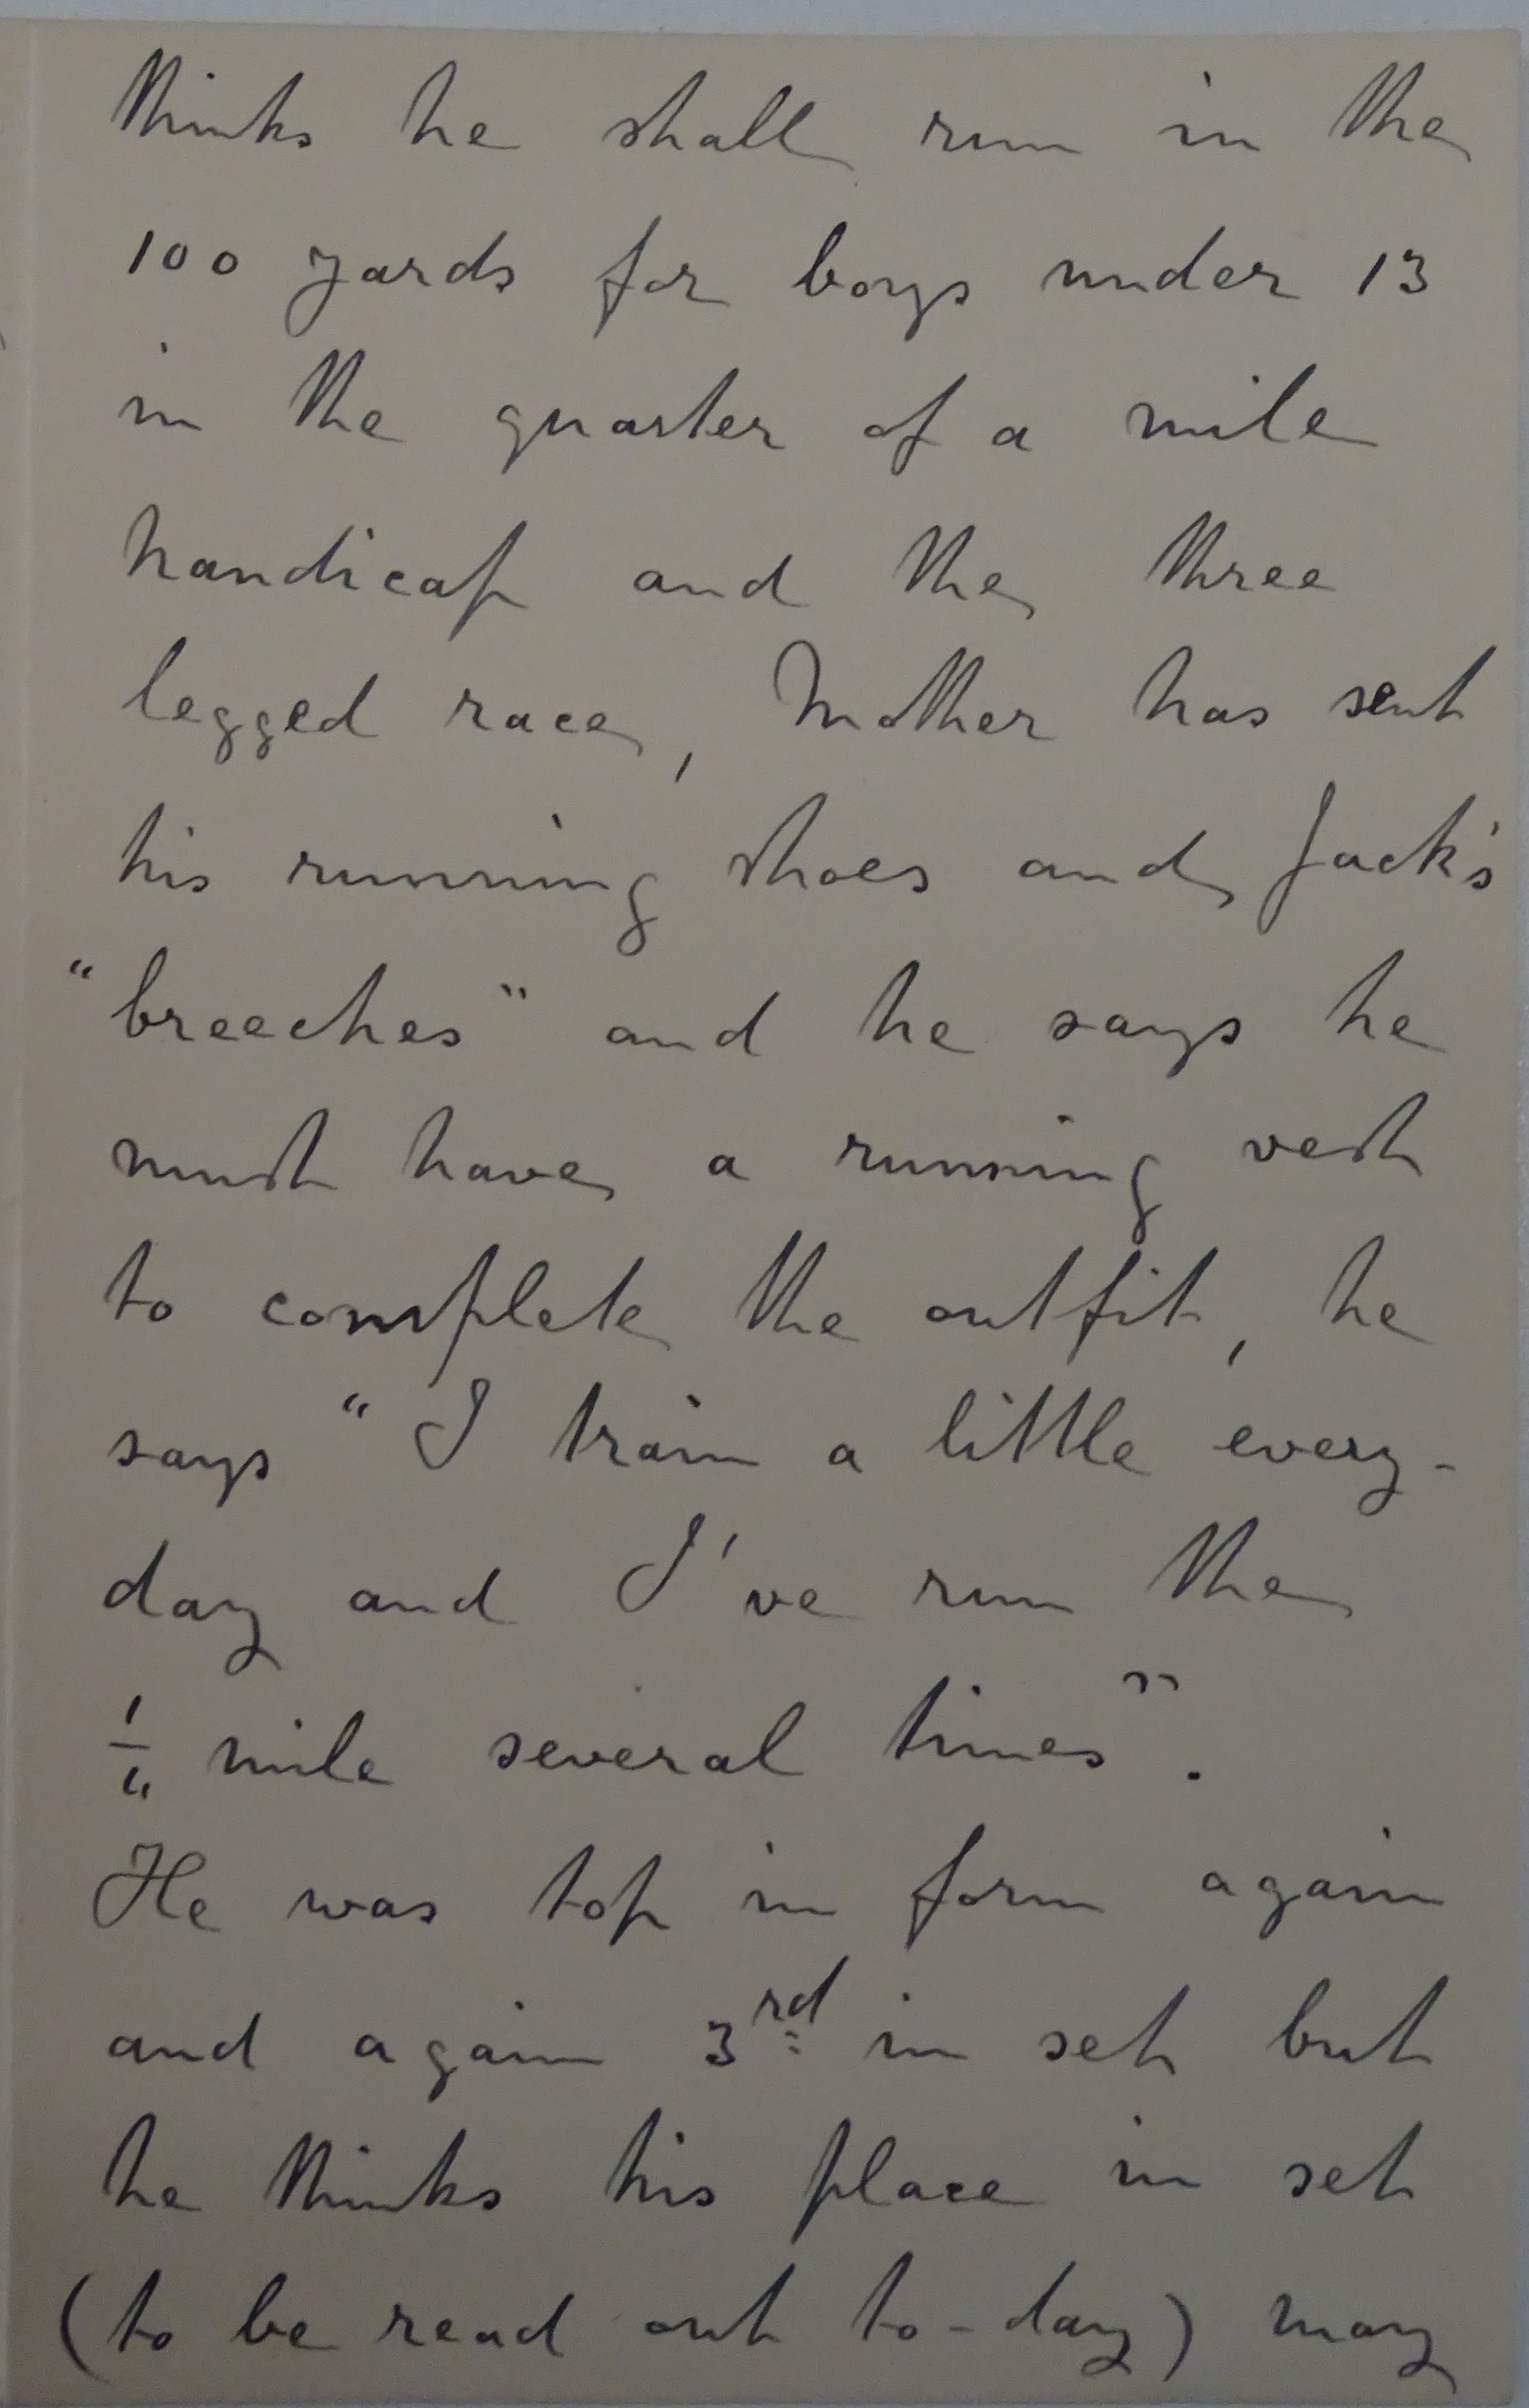 thinks he shall run in the
100 yards for boys under 13
in the quarter of a mile
handicap and the three
legged race, Mother has sent
his running shoes and Jack's
“breeches” and he says he
must have a running vest
to complete the outfit, he
says “I train a little every-
day and I've run the
¼ mile several times”.
He was top in form again
and again 3rd in set but
he thinks his place in set
(to be read out to-day) may